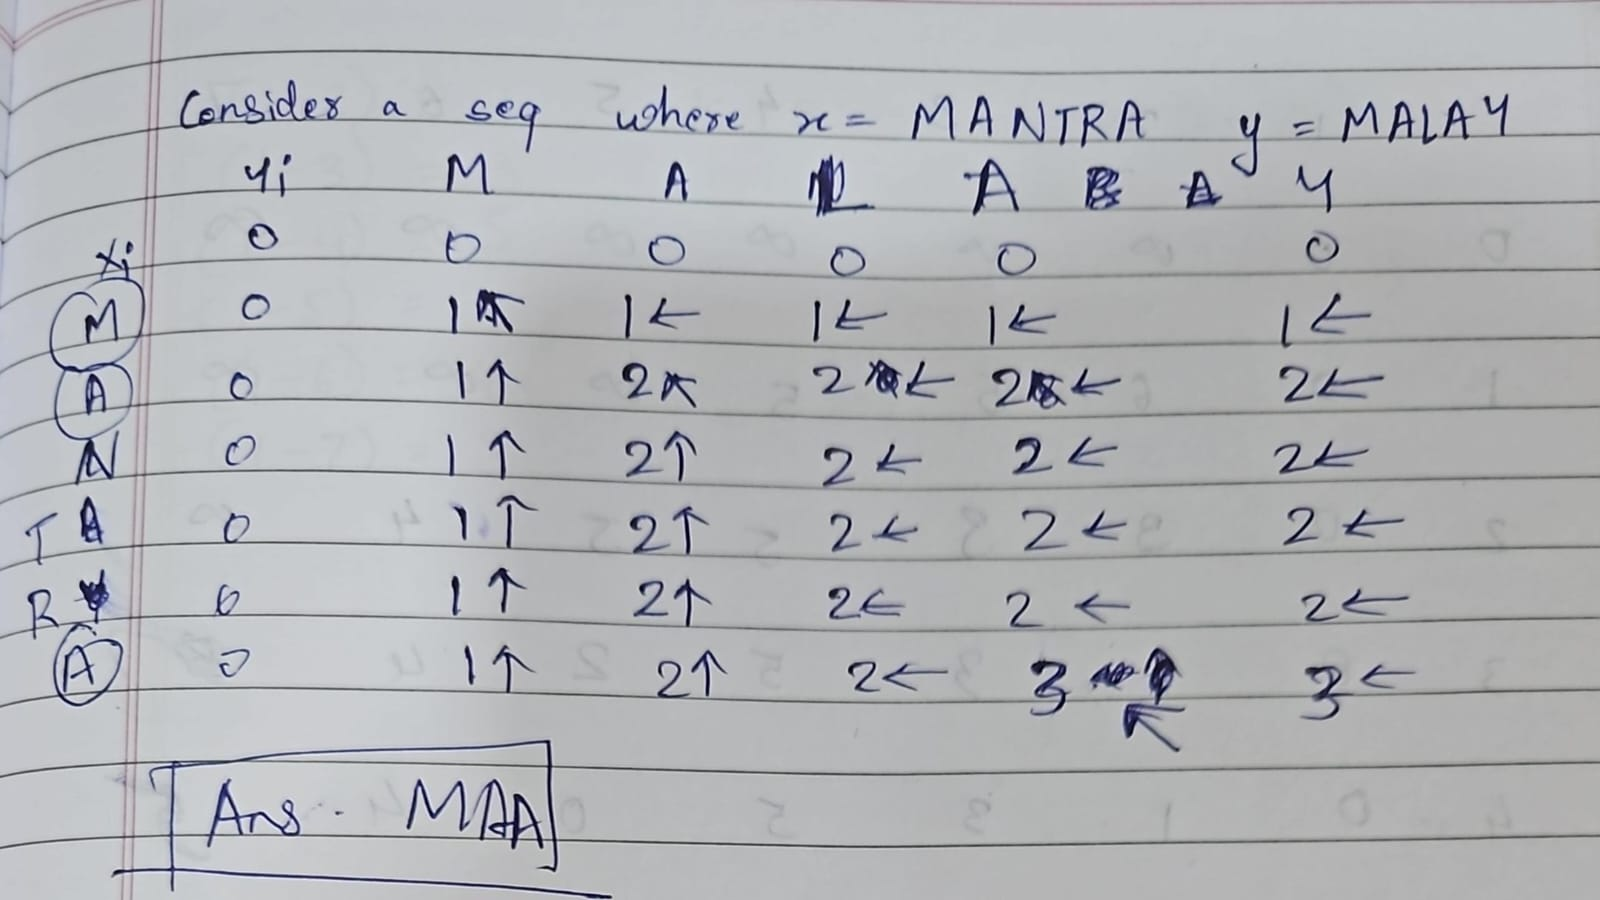 Consider a seq where x = MANTRA y = MALAY
yi M A L A Y
xi 0 0 0 0 0 0
M 0 1↖ 1← 1← 1← 1←
A 0 1↑ 2↖ 2← 2← 2←
N 0 1↑ 2↑ 2← 2← 2←
T 0 1↑ 2↑ 2← 2← 2←
R 0 1↑ 2↑ 2← 2← 2←
A 0 1↑ 2↑ 2← 3↖ 3←
Ans. MAA